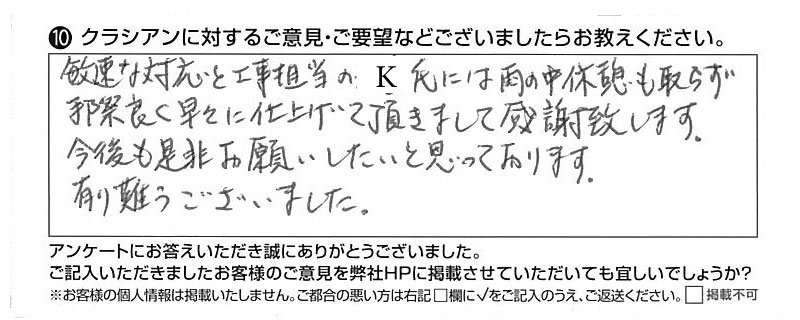 ⑩ クラシアンに対するご意見・ご要望などございましたらお教えください。
敏速な対応と工事担当の K 氏には雨の中休憩も取らず
手際良く早々に仕上げて頂きまして感謝致します。
今後も是非お願いしたいと思っております。
有り難うございました。
アンケートにお答えいただき誠にありがとうございました。
ご記入いただきましたお客様のご意見を弊社HPに掲載させていただいても宜しいでしょうか?
※お客様の個人情報は掲載いたしません。ご都合の悪い方は右記□欄に√をご記入のうえ、ご返送ください。 □ 掲載不可